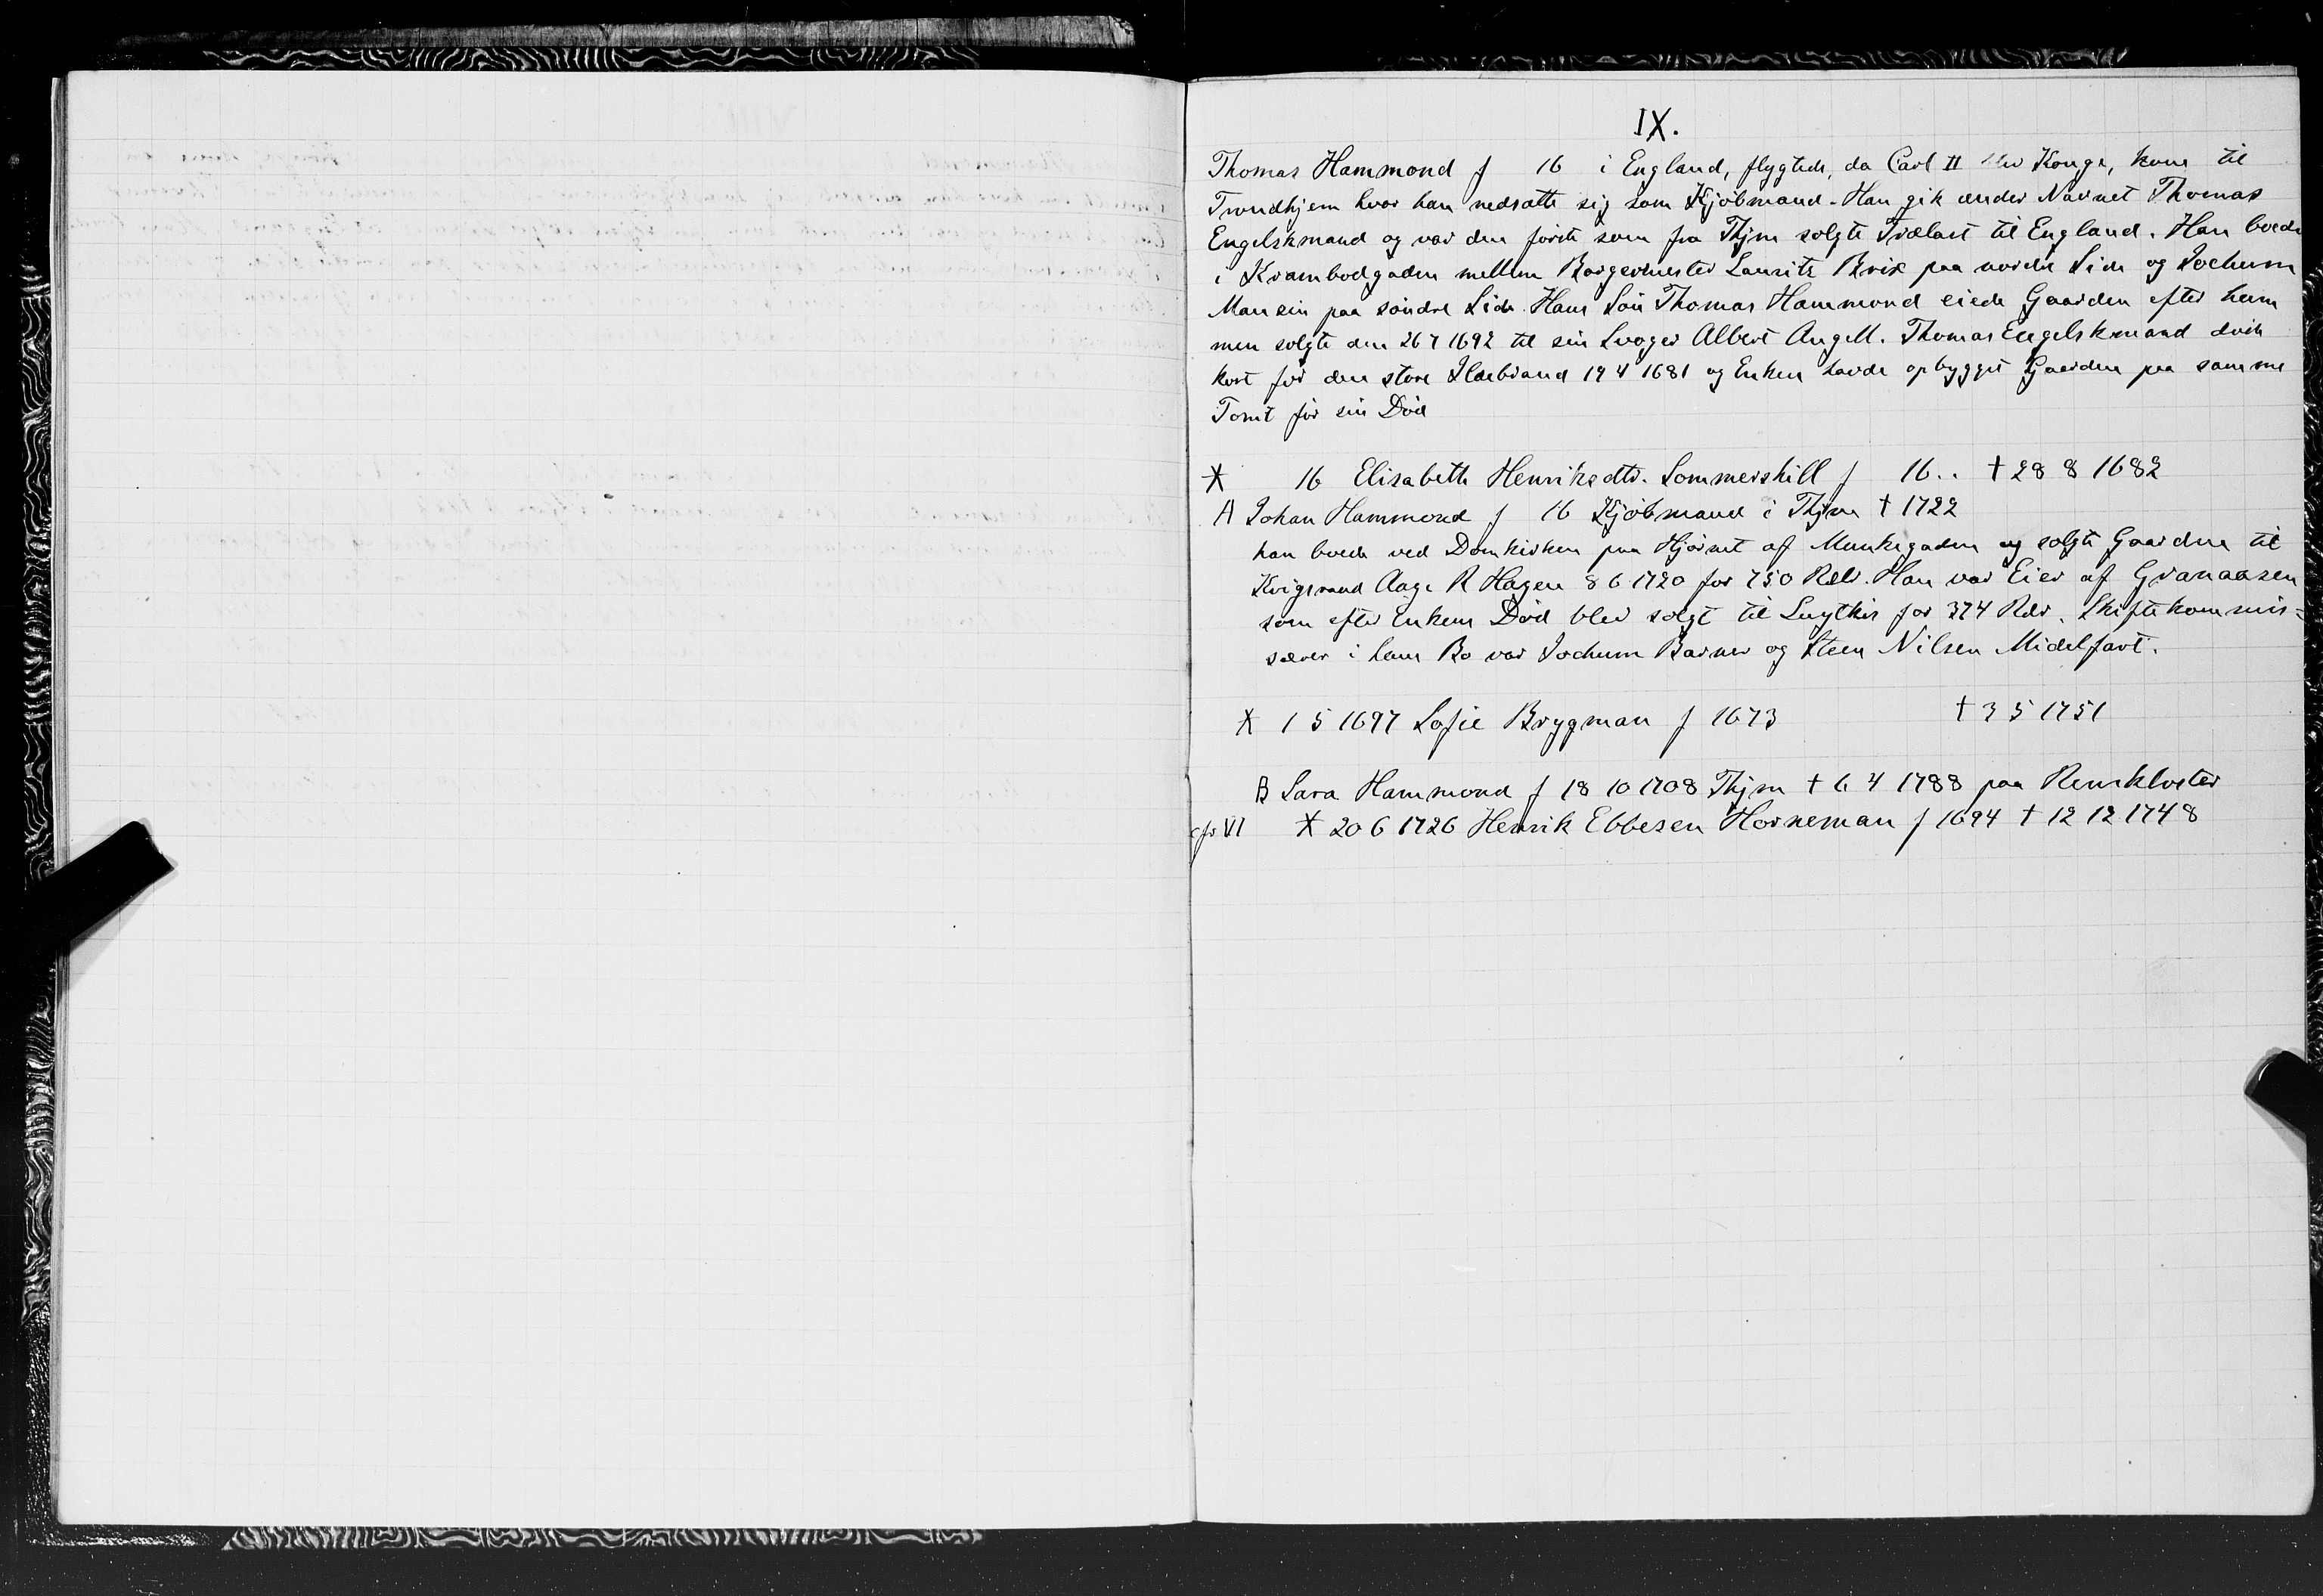 IX.
Thomas Hammond f 16 i England, flygtede, da Carl II blev Konge, kom til
Trondhjem hvor han nedsatte sig som Kjöbmand. Han gik under Navnet Thomas
Engelskmand og var den förste som fra Thjm solgte Trælast til England. Han boede
i Krambodgaden mellem Borgermester Laurits Brix paa nordre Side og Jochum
Mansin paa söndre Side. Hans Sön Thomas Hammond eiede Gaarden efter ham
men solgte den 26 7 1692 til sin Svoger Albert Angell. Thomas Engelskmand döde
kort för den store Ildebrand 19 4 1681 og Enken havde opbygget Gaarden paa samme
Tomt för sin Död
X 16 Elisabeth Henriksdtr. Sommershill f 16.. † 28 8 1682
A Johan Hammond f 16 Kjöbmand i Thjm † 1722
han boede ved Domkirken paa Hjörnet af Munkegaden og solgte Gaarden til
Krigsraad Aage R Hagen 8 6 1720 for 750 Rdlr. Han var Eier af Granaasen
som efter Enkens Död blev solgt til Lugthis for 374 Rdr. Skiftekommis=
særer i hans Bo var Jochum Barner og Steen Nilsen Midelfart.
X 1 5 1697 Sofie Brygman f 1673 † 3 5 1751
B Sara Hammond f 18 10 1708 Thjm † 6 4 1788 paa Reinskloster
cfr VI X 20 6 1726 Henrik Ebbesen Horneman f 1694 † 12 12 1748